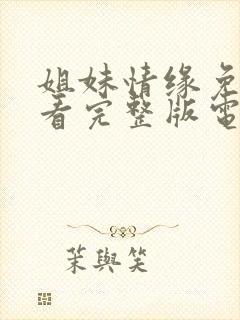 姐妹情缘免
看完整版電
茉與笑